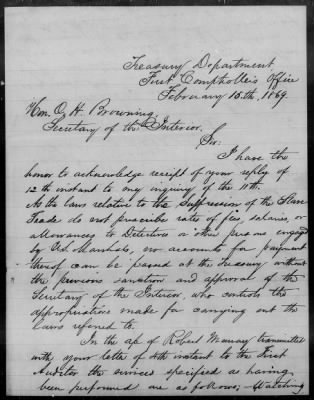 Treasury Department
First Comptroller's Office
February 15th, 1869.
Hon. O. H. Browning,
Secretary of the Interior.
Sir:
I have the
honor to acknowledge receipt of your reply of
12th instant to my inquiry of the 11th.
As the laws relative to the suppression of the Slave
Trade do not prescribe rates of fees, salaries, or
allowances to Detectives or other persons engaged
by U.S. Marshals, no accounts for payment
thereof can be passed at the Treasury without
the previous sanction and approval of the
Secretary of the Interior, who controls the
appropriations made for carrying out the
laws referred to.
In the a/c of Robert Murray transmitted
with your letter of 4th instant to the First
Auditor the services specified as having
been performed are as follows; Watching